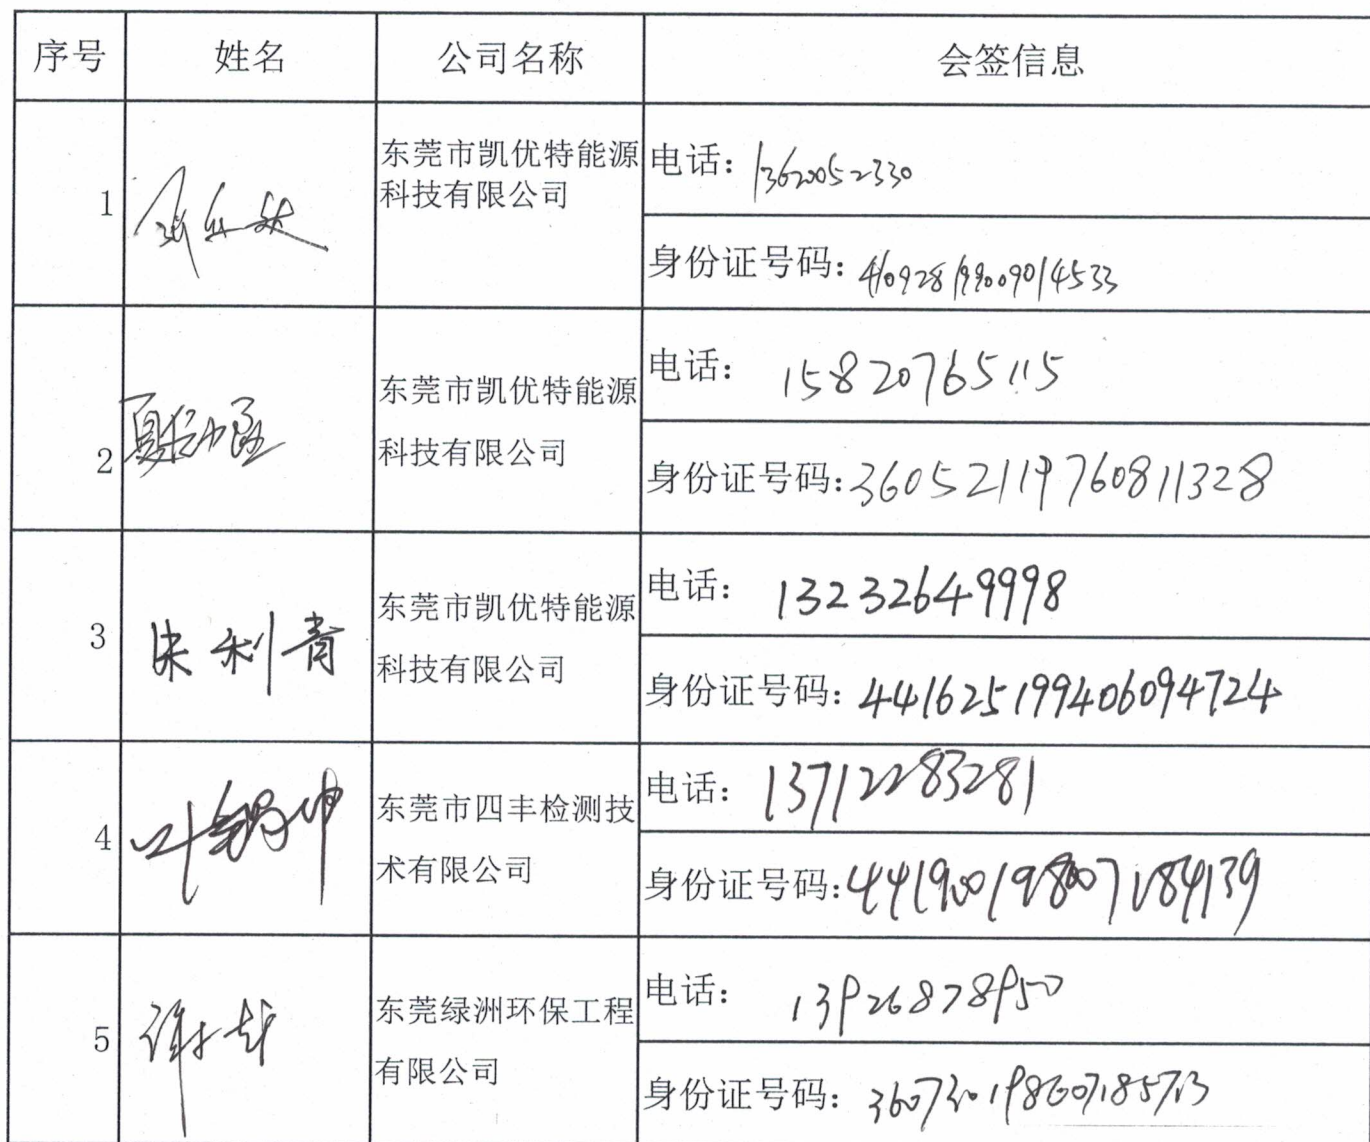 序号 姓名 公司名称 会签信息
1 东莞市凯优特能源
科技有限公司
电话: 13620052330
身份证号码: 410928199009014533
2 东莞市凯优特能源
科技有限公司
电话: 15820765115
身份证号码: 36052119760811328
3 朱利青 东莞市凯优特能源
科技有限公司
电话: 13232649998
身份证号码: 441625199406094724
4 叶锦坤 东莞市四丰检测技
术有限公司
电话: 13712283281
身份证号码: 441900198007184139
5 东莞绿洲环保工程
有限公司
电话: 13926878950
身份证号码: